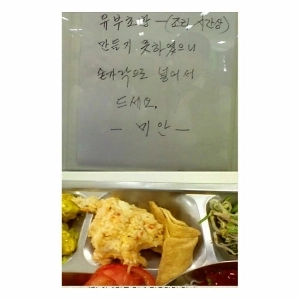 유부초밥 - (조리 시간상)
만들기 못하였으니
손가락으로 넣어서
드세요.
- 미안 -